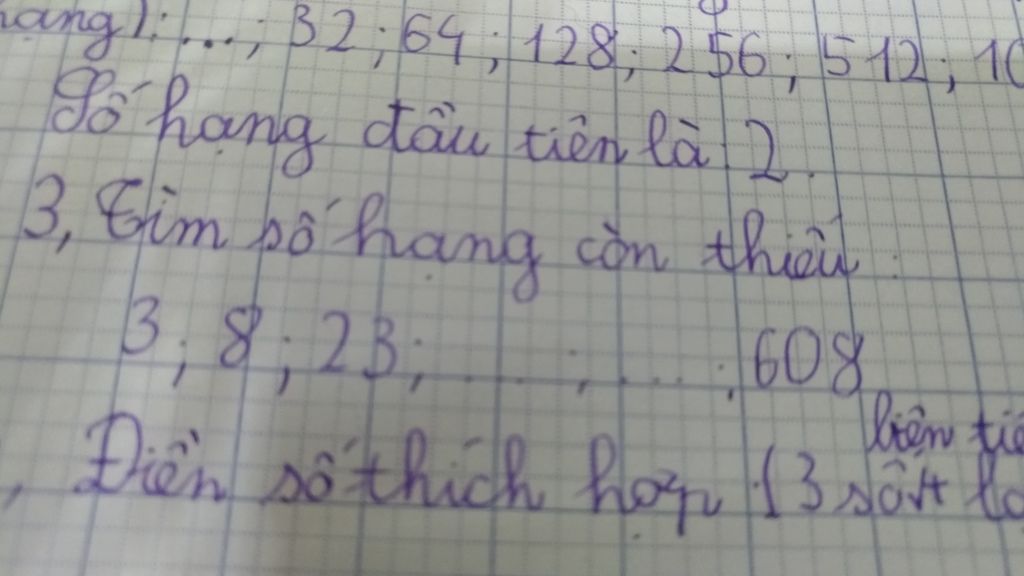 hạng): ...; 32; 64; 128; 256; 512; 10
Số hạng đầu tiên là 2.
3, Tìm số hạng còn thiếu:
3; 8; 23; ....; ....; 608
liên tiế
, Điền số thích hợp (3 số